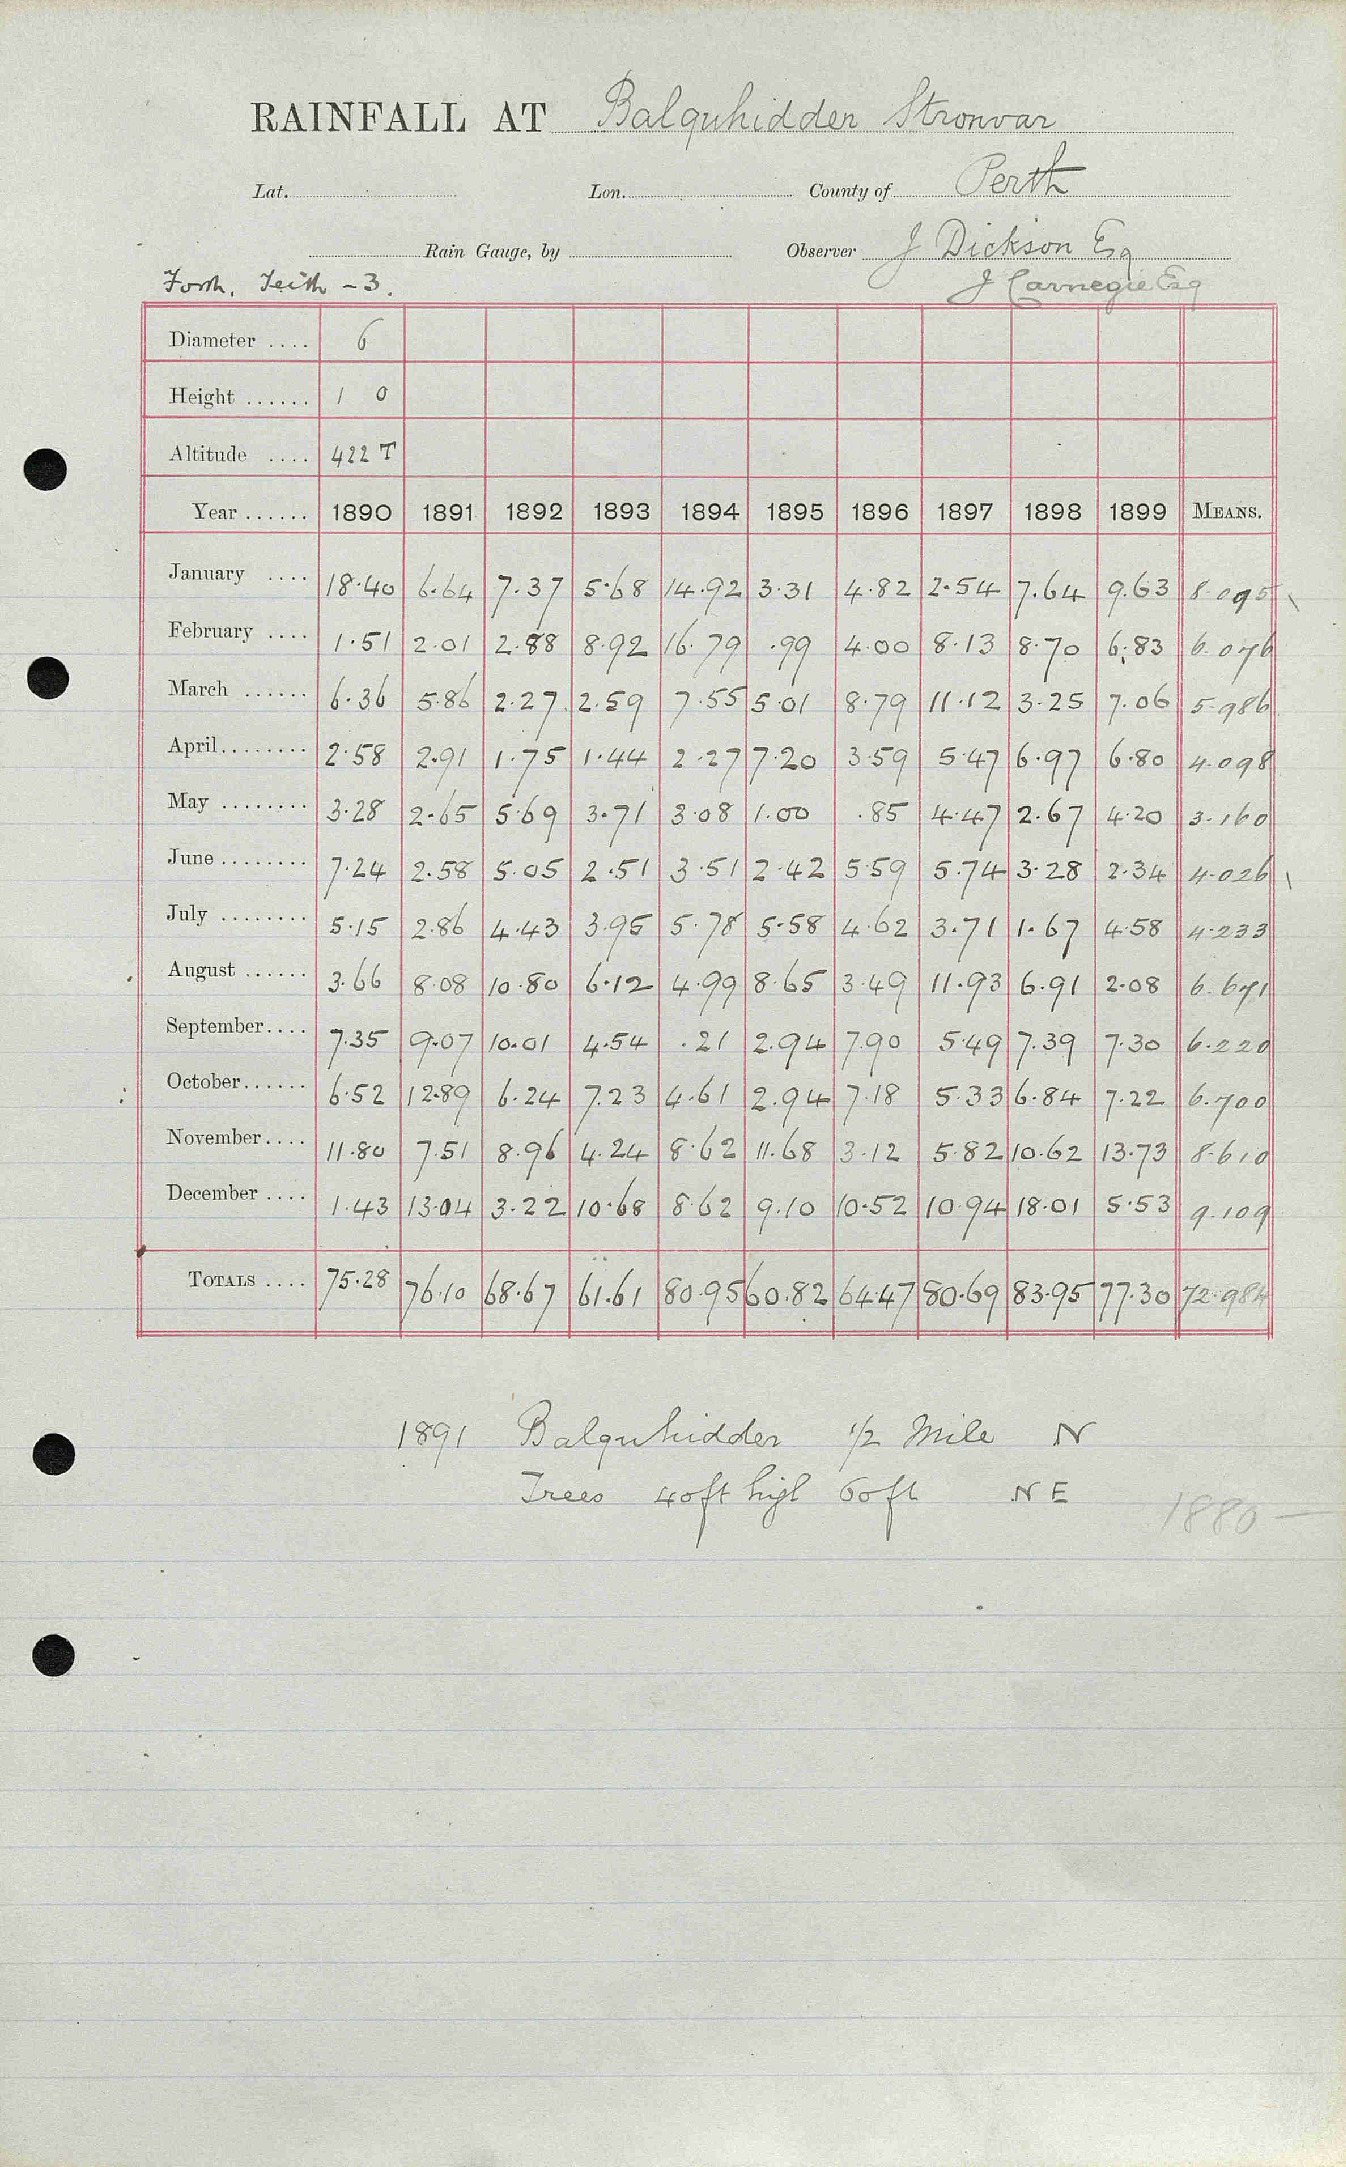 RAINFALL AT Balquhidder Stronvar
Lat. Lon. County of Perth
Rain Gauge, by Observer J Dickson Esq
Forth. Teith - 3. J Carnegie Esq
Diameter .... 6
Height ...... 1 0
Altitude .... 422 T
Year ...... 1890 1891 1892 1893 1894 1895 1896 1897 1898 1899 MEANS.
January .... 18.40 6.64 7.37 5.68 14.92 3.31 4.82 2.54 7.64 9.63 8.095
February .... 1.51 2.01 2.88 8.92 16.79 .99 4.00 8.13 8.70 6.83 6.076
March ...... 6.36 5.86 2.27 2.59 7.55 5.01 8.79 11.12 3.25 7.06 5.986
April........ 2.58 2.91 1.75 1.44 2.27 7.20 3.59 5.47 6.97 6.80 4.098
May ........ 3.28 2.65 5.69 3.71 3.08 1.00 .85 4.47 2.67 4.20 3.160
June ........ 7.24 2.58 5.05 2.51 3.51 2.42 5.59 5.74 3.28 2.34 4.026
July ........ 5.15 2.86 4.43 3.95 5.78 5.58 4.62 3.71 1.67 4.58 4.233
August ...... 3.66 8.08 10.80 6.12 4.99 8.65 3.49 11.93 6.91 2.08 6.671
September.... 7.35 9.07 10.01 4.54 .21 2.94 7.90 5.49 7.39 7.30 6.220
October...... 6.52 12.89 6.24 7.23 4.61 2.94 7.18 5.33 6.84 7.22 6.700
November.... 11.80 7.51 8.96 4.24 8.62 11.68 3.12 5.82 10.62 13.73 8.610
December .... 1.43 13.04 3.22 10.68 8.62 9.10 10.52 10.94 18.01 5.53 9.109
TOTALS .... 75.28 76.10 68.67 61.61 80.95 60.82 64.47 80.69 83.95 77.30 72.984
1891 Balquhidder 1/2 Mile N
Trees 40ft high 60ft N E
1880 —